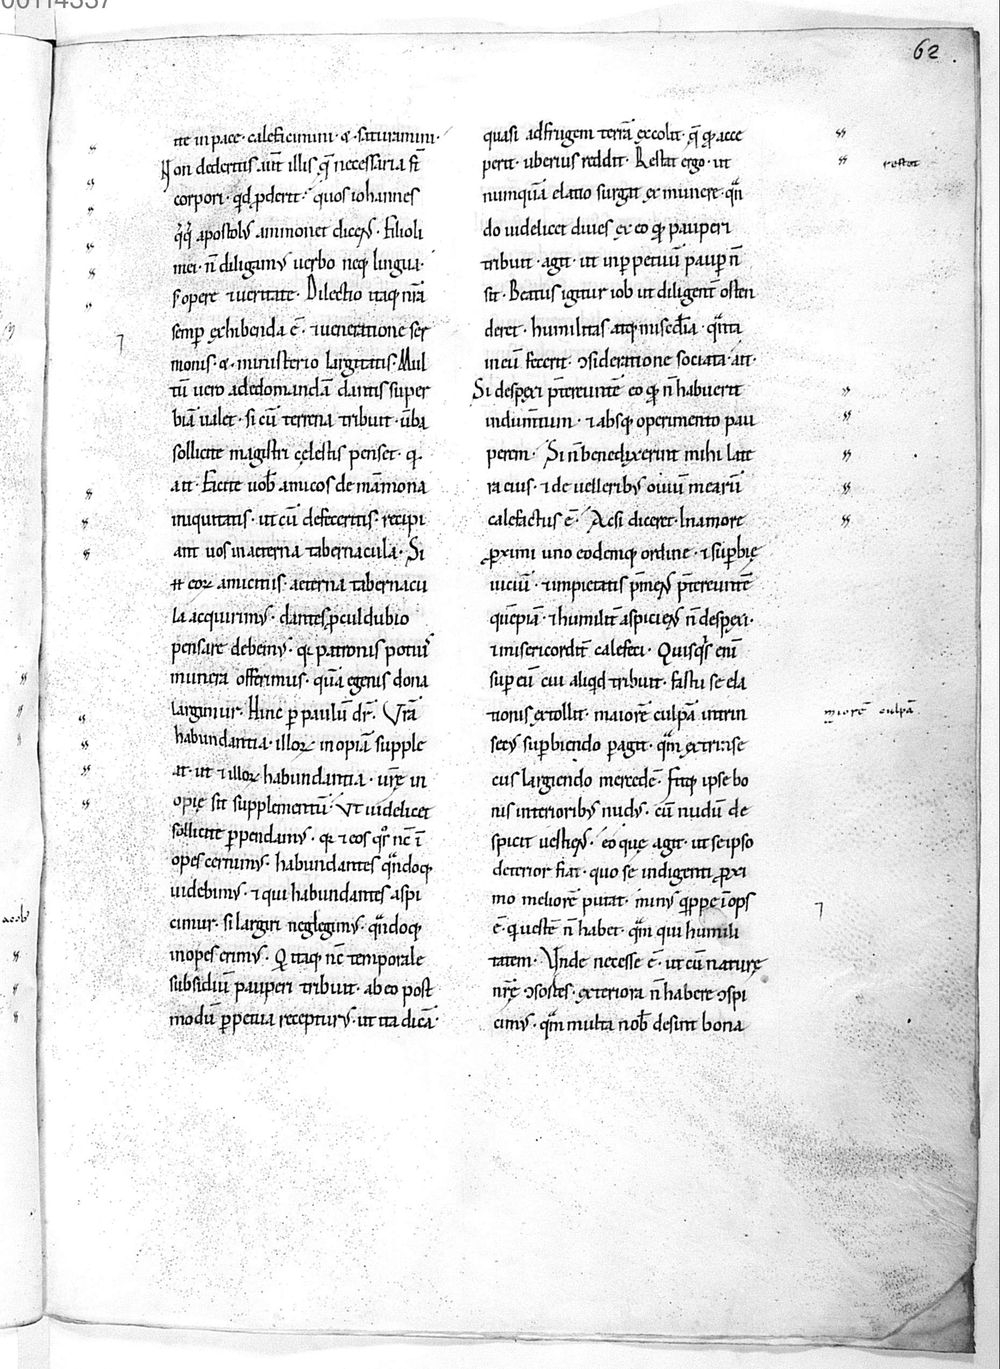 00114337
62
tte in pace· calefacimini· & ·saturamini·
Non dederitis aut̄ illis q̄ necessaria st̄
corpori· qd ꝓderit· quos iohannes
q̄q̄ apostolꝰ ammonet dicens· Filioli
mei· n̄ diligamꝰ uerbo neq; lingua·
s; opere ⁊ ueritate· Dilectio itaq; nr̄a
semp̄ exhibenda ē· ⁊ ueneratione ser
monis· & · ministerio largitatis· Mul
tū uero ad edomandā dantis super
biā ualet· si cū terrena tribuit· uba
sollicite magistri cęlestis penset· q·
ait· Facite uob̄ amicos de māmona
iniquitatis· ut cū defeceritis· recipi
ant uos in aeterna tabernacula· Si
н̄ eoꝝ amicitiis· aeterna tabernacu
la acquirimꝰ· dantes ꝓculdubio
pensare debemꝰ· qđ patronis potiuſ
munera offerimus· quā egenis dona
largimur· Hinc p̄ paulū dr̄· Vrā
habundantia· illoꝝ inopiā supple
at· ut ⁊ illoꝝ habundantia· urę in
opię sit supplementū· Vt uidelicet
sollicite p̄pendamꝰ· qđ ⁊ eos qꝰ nc̄ ī
opes cernimꝰ· habundantes qn̄doq;
uidebimꝰ· ⁊ qui habundantes aspi
cimur· si largiri neglegimꝰ· qn̄doq;
inopes erimꝰ· Q itaq; nc̄ temporale
subsidiū pauperi tribuit· ab eo post
modū p̄petua recepturꝰ· ut ita dicā·
quasi ad frugem terrā excolit· q̄ qđ acce
perit· uberius reddit· Restat ergo· ut
numquā elatio surgat ex munere· qn̄
do uidelicet diues ex eo qđ pauperi
tribuit· agit· ut in p̄petuū paup̄ n̄
sit· Beatus igitur iob ut diligent̄ osten
deret· humilitas atq; misedia· qn̄ta
in eū fecerit· ↄsideratione sociata· ait·
Si despexi p̄tereuntē eo qđ n̄ habuerit
indumtum· ⁊ absq; operimento pau
perem· Si n̄ benedixerunt mihi late
ra eius· ⁊ de uelleribꝰ ouiū mearū
calefactus ē· Acsi diceret· In amore
ꝓximi uno eodemq; ordine· ⁊ superbię
uiciū· ⁊ impietatis p̄mens p̄tereuntē
quēpiā· ⁊ humilit̄ aspiciens n̄ despexi·
⁊ misericordit̄ calefeci· Quisqͥs eni
sup̄ eū cui aliqd tribuit· fastu se ela
tionis extollit· maiorē culpā intrin
secꝰ sup̄biendo p̄agit· qm̄ extrinse
cus largiendo mercedē· Fitq; ipse bo
nis interioribꝰ nudꝰ· cū nudū de
spicit uestiens· eo que agit· ut se ipso
deterior fiat· quo se indigenti ꝓxi
mo meliorē putat· minꝰ qppe īops
ē· qui uestē n̄ habet· qm̄ qui humili
tatem· Vnde necesse ē· ut cū naturę
nrę ↄsortes· exteriora n̄ habere ↄspi
cimꝰ· qm̄ multa nob̄ desint bona
restat
maiorē culpā